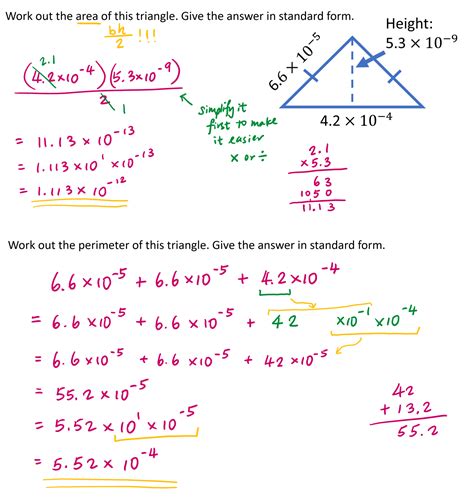 Work out the area of this triangle. Give the answer in standard form.
bh/2 !!!
Height:
5.3 × 10⁻⁹
6.6 × 10⁻⁵
4.2 × 10⁻⁴
2.1
(4.2×10⁻⁴)(5.3×10⁻⁹)
2 1
simplify it
first to make
it easier
× or ÷
= 11.13 × 10⁻¹³
= 1.113 × 10¹ × 10⁻¹³
= 1.113 × 10⁻¹²
2.1
× 5.3
63
1050
11.13
Work out the perimeter of this triangle. Give the answer in standard form.
6.6×10⁻⁵ + 6.6×10⁻⁵ + 4.2×10⁻⁴
= 6.6×10⁻⁵ + 6.6×10⁻⁵ + 42 ×10⁻¹×10⁻⁴
= 6.6×10⁻⁵ + 6.6×10⁻⁵ + 42×10⁻⁵
= 55.2×10⁻⁵
= 5.52×10¹×10⁻⁵
= 5.52×10⁻⁴
42
+ 13.2
55.2